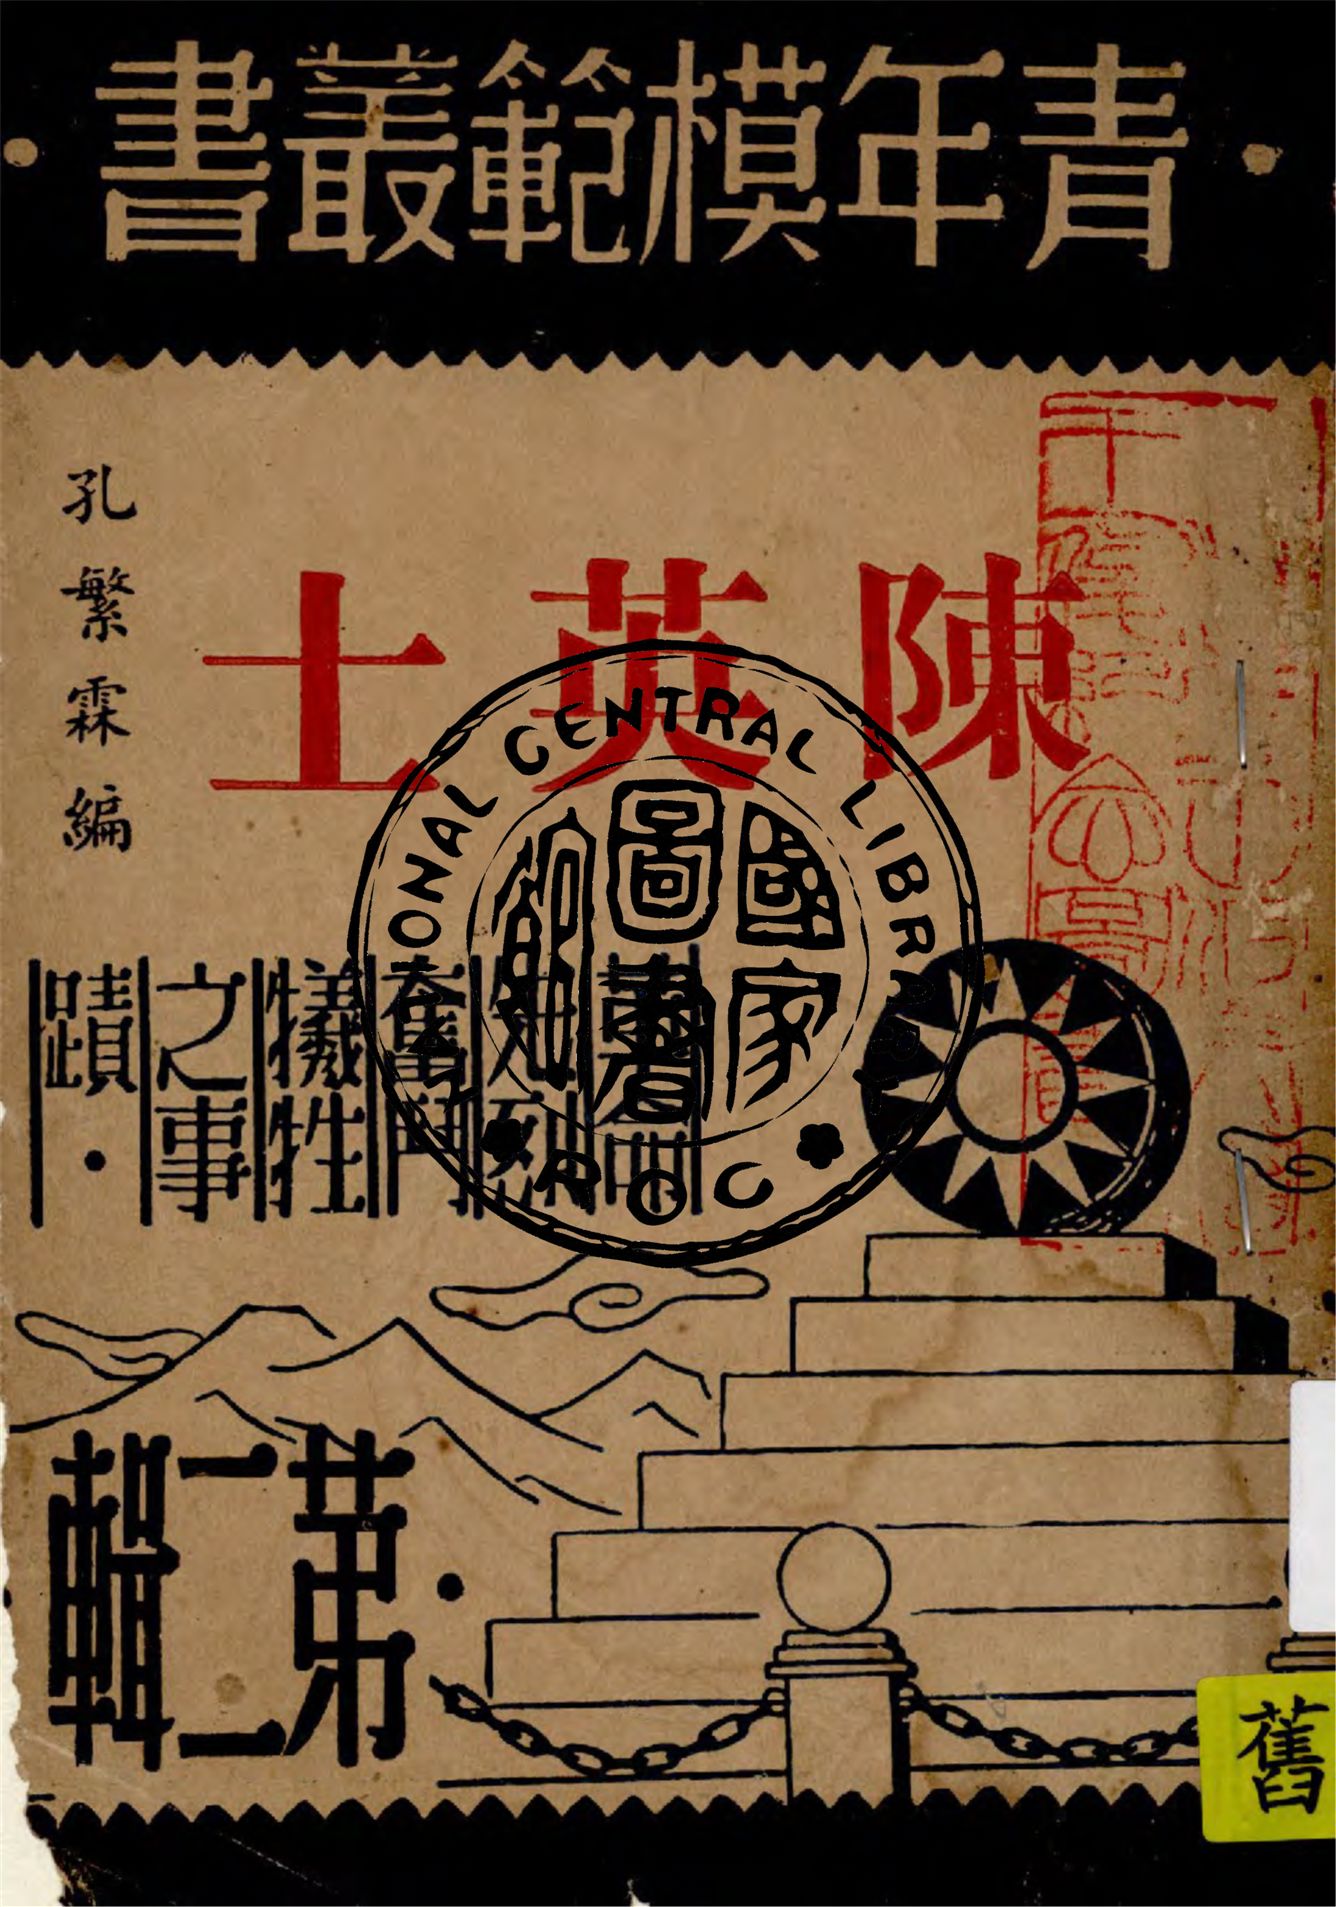 青年模範叢書
陳英士
孔繁霖編
先烈
奮鬥
犧牲
之事
蹟
第二輯
NATIONAL CENTRAL LIBRARY
R.O.C
國家
圖書
館
舊